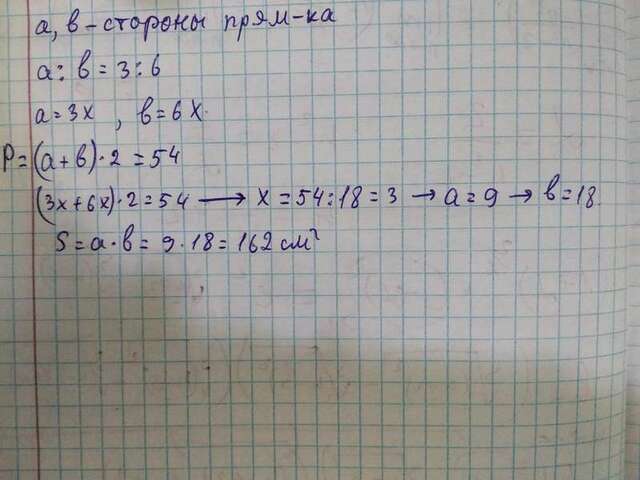 а, в - стороны прям-ка
а : в = 3 : 6
а = 3х , в = 6х
Р = (а + в) · 2 = 54
(3х + 6х) · 2 = 54 → х = 54 : 18 = 3 → а = 9 → в = 18
S = а · в = 9 · 18 = 162 см²